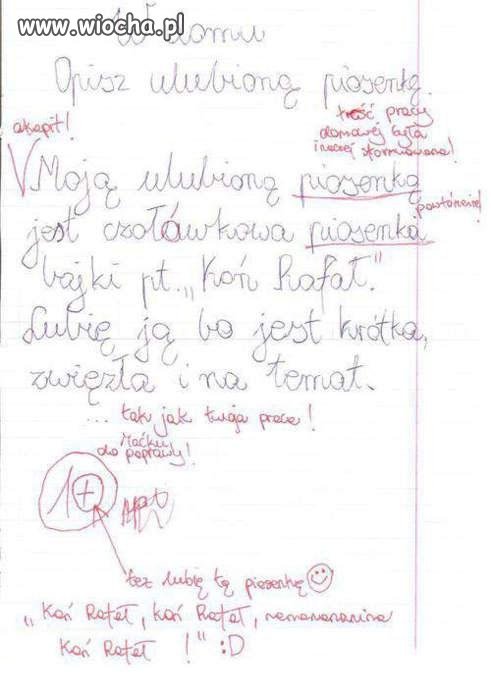 www.wiocha.pl
W domu
Opisz ulubioną piosenkę.
treść pracy
domowej była
inaczej sformułowana!
akapit!
Moją ulubioną piosenką
powtórzenie!
jest czołówkowa piosenka
bajki pt. „Koń Rafał."
Lubię ją bo jest krótka,
zwięzła i na temat.
... tak jak twoja praca!
Maćku
do poprawy!
1+
też lubię tę piosenkę
„Koń Rafał, koń Rafał, nananananana
Koń Rafał !" :D